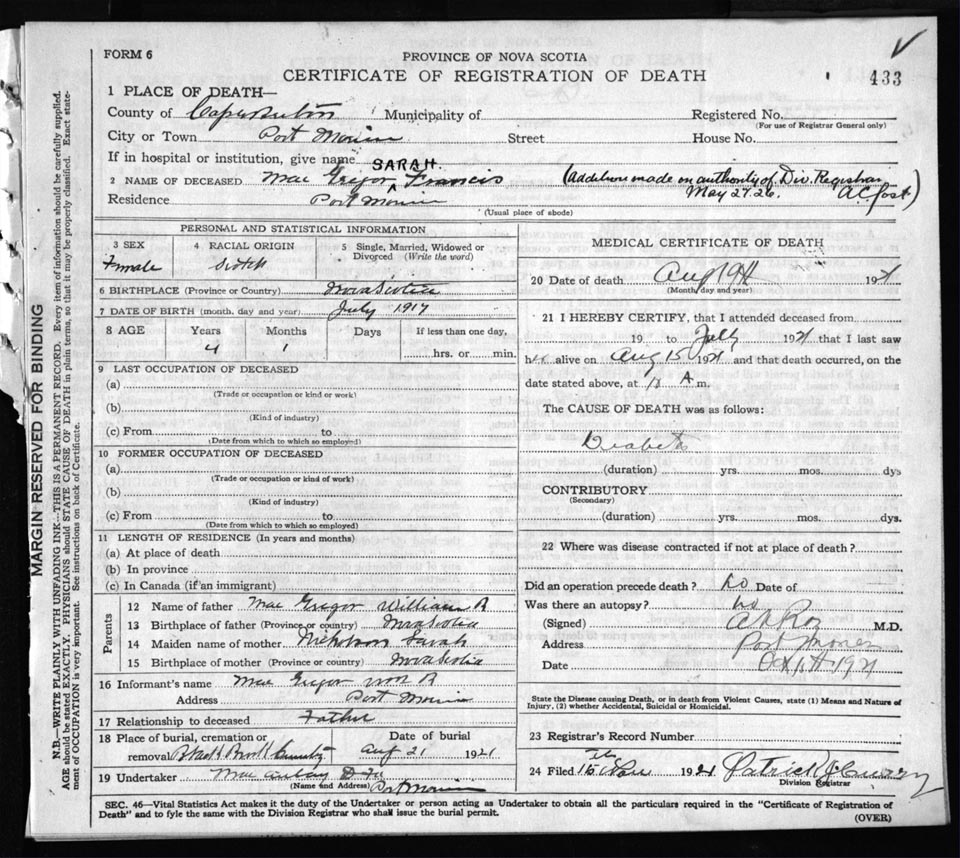 FORM 6
PROVINCE OF NOVA SCOTIA
CERTIFICATE OF REGISTRATION OF DEATH
433
1 PLACE OF DEATH—
County of Cape Breton Municipality of Registered No.
(For use of Registrar General only)
City or Town Port Morien Street House No.
If in hospital or institution, give name
SARAH.
2 NAME OF DECEASED Mac Gregor Francis (Addition made on authority of Div. Registrar
May 27. 26. A.C. Jost)
Residence Port Morien
(Usual place of abode)
PERSONAL AND STATISTICAL INFORMATION
3 SEX 4 RACIAL ORIGIN 5 Single, Married, Widowed or Divorced (Write the word)
Female Scotch
6 BIRTHPLACE (Province or Country) Nova Scotia
7 DATE OF BIRTH (month, day and year) July 1917
8 AGE Years Months Days If less than one day,
4 1 hrs. or min.
9 LAST OCCUPATION OF DECEASED
(a)
(Trade or occupation or kind or work)
(b)
(Kind of industry)
(c) From to
(Date from which to which so employed)
10 FORMER OCCUPATION OF DECEASED
(a)
(Trade or occupation or kind of work)
(b)
(Kind of industry)
(c) From to
(Date from which to which so employed)
11 LENGTH OF RESIDENCE (In years and months)
(a) At place of death
(b) In province
(c) In Canada (if an immigrant)
Parents
12 Name of father Mac Gregor William R
13 Birthplace of father (Province or country) Nova Scotia
14 Maiden name of mother Nicholson Sarah
15 Birthplace of mother (Province or country) Nova Scotia
16 Informant's name Mac Gregor Wm R
Address Port Morien
17 Relationship to deceased Father
18 Place of burial, cremation or Date of burial
removal Black Brook Aug 21 1921
19 Undertaker
(Name and Address) Port Morien
MEDICAL CERTIFICATE OF DEATH
20 Date of death Aug 19th 1921
(Month, day and year)
21 I HEREBY CERTIFY, that I attended deceased from
19 to July 1921 that I last saw
her alive on Aug 15 1921 and that death occurred, on the
date stated above, at A m.
The CAUSE OF DEATH was as follows:
Diabetes
(duration) yrs. mos. dys
CONTRIBUTORY
(Secondary)
(duration) yrs. mos. dys.
22 Where was disease contracted if not at place of death?
Did an operation precede death? No Date of
Was there an autopsy? No
(Signed) Roy M.D.
Address Port Morien
Date Oct 1921
State the Disease causing Death, or in death from Violent Causes, state (1) Means and Nature of
Injury, (2) whether Accidental, Suicidal or Homicidal.
23 Registrar's Record Number
24 Filed 1921 Patrick
Division Registrar
SEC. 46—Vital Statistics Act makes it the duty of the Undertaker or person acting as Undertaker to obtain all the particulars required in the "Certificate of Registration of
Death" and to fyle the same with the Division Registrar who shall issue the burial permit.
(OVER)
MARGIN RESERVED FOR BINDING
N.B.—WRITE PLAINLY WITH UNFADING INK—THIS IS A PERMANENT RECORD. Every item of information should be carefully supplied.
AGE should be stated EXACTLY. PHYSICIANS should STATE CAUSE OF DEATH in plain terms, so that it may be properly classified. Exact state-
ment of OCCUPATION is very important. See instructions on back of Certificate.